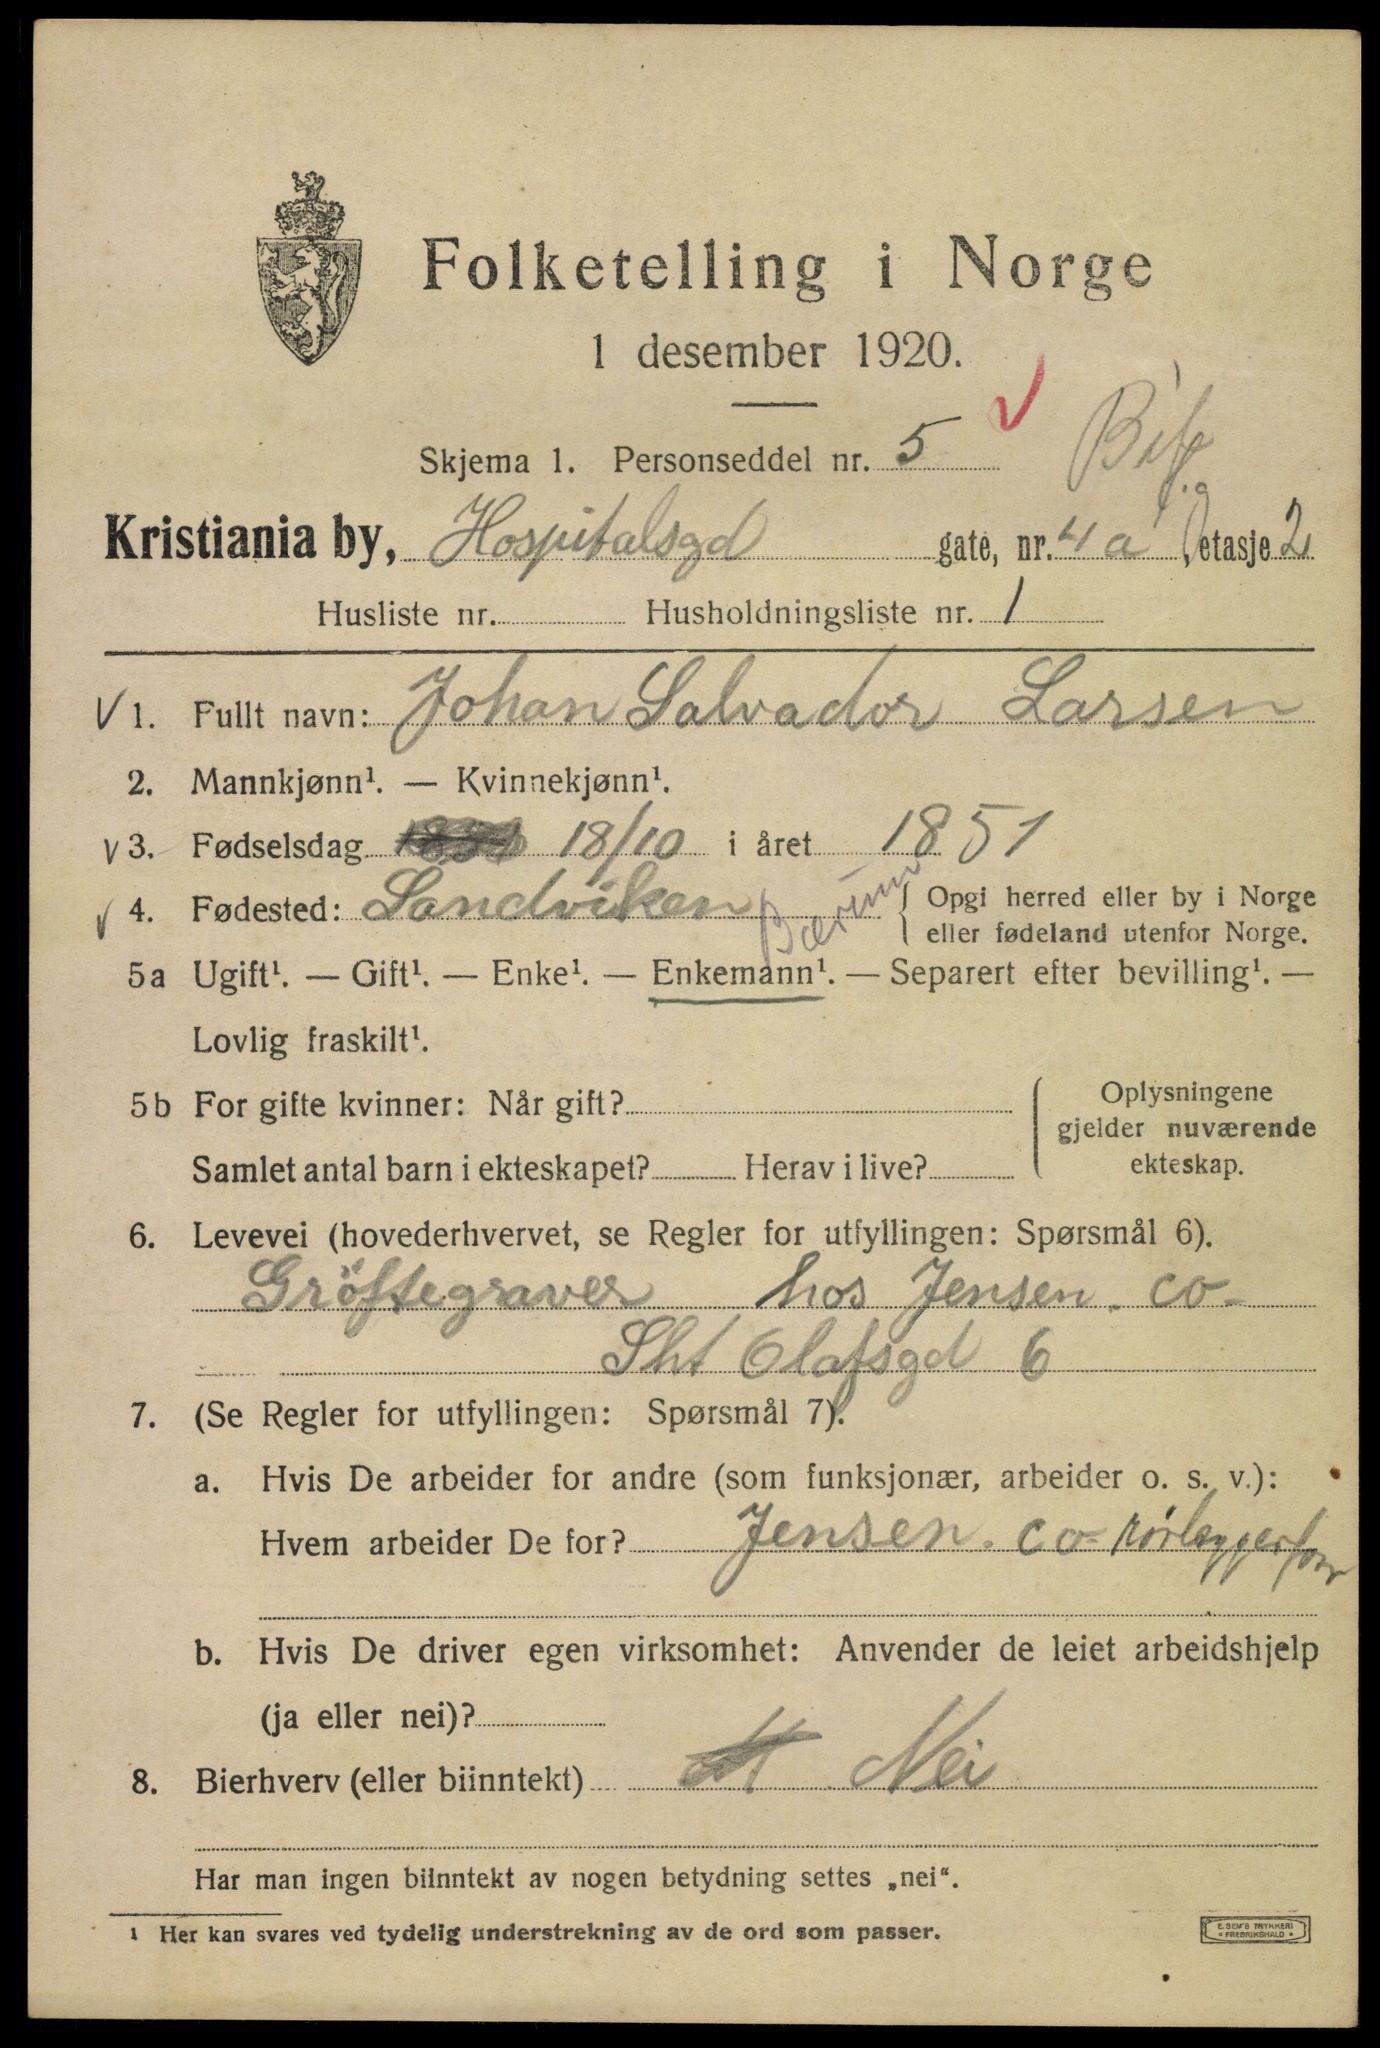 Folketelling i Norge
1 desember 1920.
Skjema 1. Personseddel nr. 5
Kristiania by, Hospitalsgd gate, nr. 4a, etasje 2
Husliste nr. Husholdningsliste nr. 1
1. Fullt navn: Johan Salvador Larsen
2. Mannkjønn¹. — Kvinnekjønn¹.
3. Fødselsdag 18/10 i året 1851
4. Fødested: Sandviken Bærum { Opgi herred eller by i Norge
eller fødeland utenfor Norge.
5a Ugift¹. — Gift¹. — Enke¹. — Enkemann¹. — Separert efter bevilling¹. —
Lovlig fraskilt¹.
5b For gifte kvinner: Når gift?
Samlet antal barn i ekteskapet? Herav i live?
Oplysningene
gjelder nuværende
ekteskap.
6. Levevei (hovederhvervet, se Regler for utfyllingen: Spørsmål 6).
Gröftegraver hos Jensen. co-
Sht Olafsgd 6
7. (Se Regler for utfyllingen: Spørsmål 7).
a. Hvis De arbeider for andre (som funksjonær, arbeider o. s. v.):
Hvem arbeider De for? Jensen. co-
b. Hvis De driver egen virksomhet: Anvender de leiet arbeidshjelp
(ja eller nei)?
8. Bierhverv (eller biinntekt) Nei
Har man ingen biinntekt av nogen betydning settes „nei“.
¹ Her kan svares ved tydelig understrekning av de ord som passer.
E. SEM'S TRYKKERI
* FREDRIKSHALD *